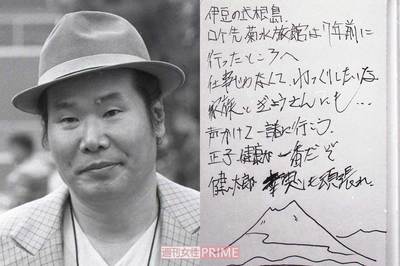 伊豆の式根島.
ロケ先菊水旅館は7年前に
行ったところへ
仕事じゃなくて、ゆっくりしたいな.
家族とぎょうさんにも…
声かけて一諸に行こう.
正子健康が一番だぞ
健太郎 も頑張れ.
週刊女性PRIME